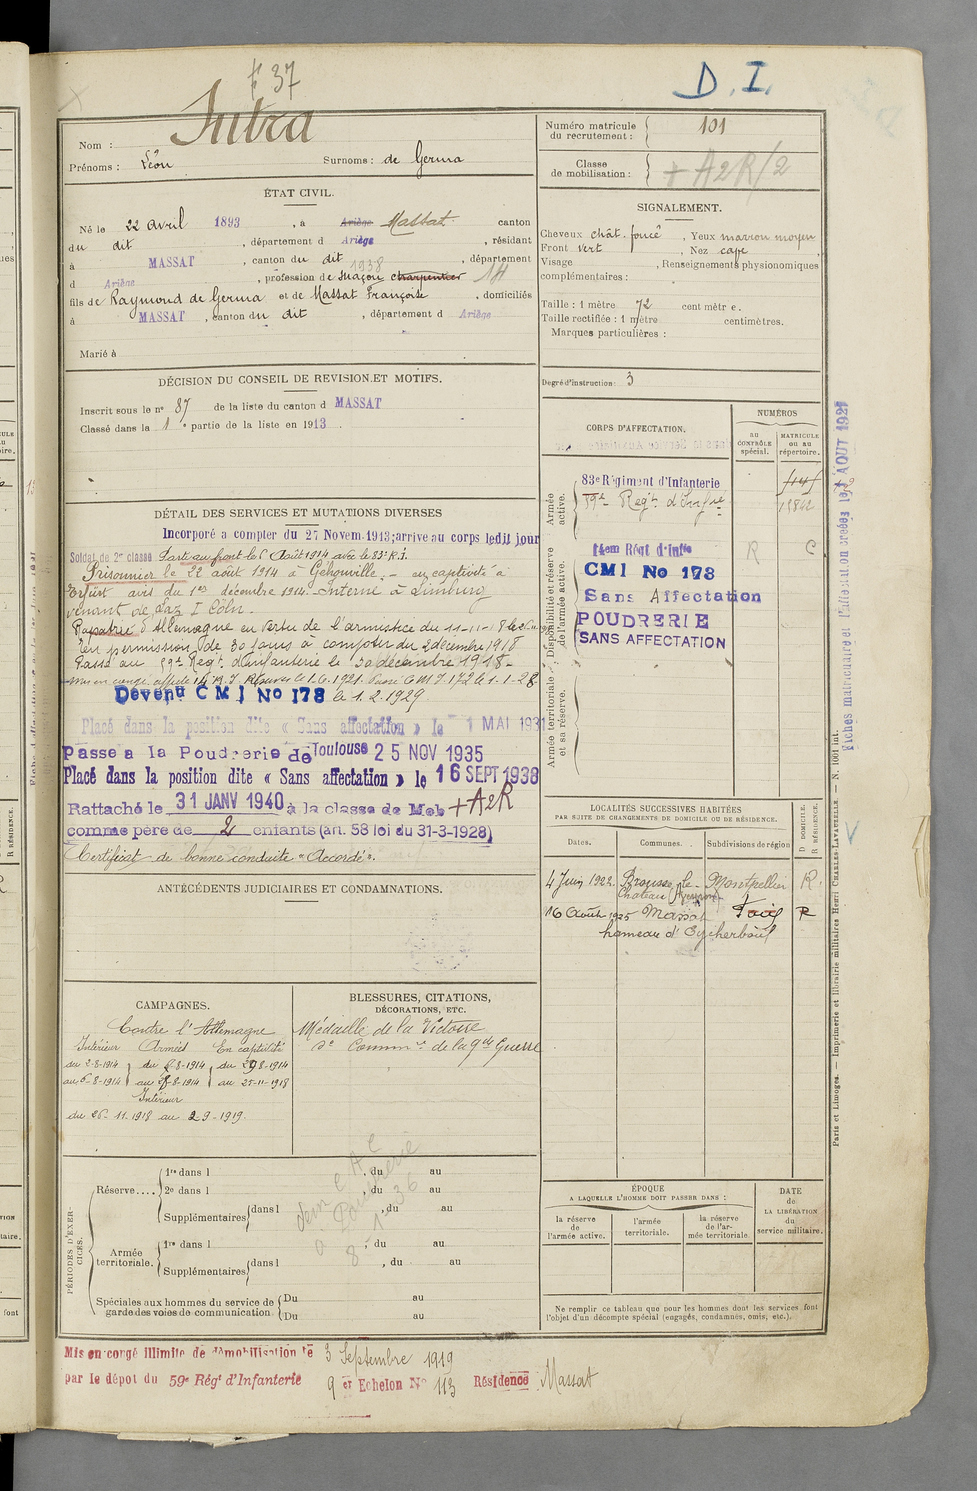 37
D. I.
Nom : Intra
Prénoms : Léon Surnoms : de Germa
Numéro matricule du recrutement : 101
Classe de mobilisation : + A2R/2
ÉTAT CIVIL.
Né le 22 avril 1893, à Ariège Massat canton
du dit, département d Ariège, résidant
à MASSAT, canton du dit 1938, département
d Ariège, profession de maçon charpentier 14
fils de Raymond de Germa et de Massat Françoise, domiciliés
à MASSAT, canton du dit, département d Ariège
Marié à
SIGNALEMENT.
Cheveux chât. foncé, Yeux marron moyen
Front vert, Nez cave
Visage, Renseignements physionomiques
complémentaires :
Taille : 1 mètre 72 centimètre.
Taille rectifiée : 1 mètre centimètres.
Marques particulières :
Degré d'instruction : 3
DÉCISION DU CONSEIL DE REVISION ET MOTIFS.
Inscrit sous le n° 87 de la liste du canton d MASSAT
Classé dans la 1e partie de la liste en 1913.
DÉTAIL DES SERVICES ET MUTATIONS DIVERSES
Incorporé a compter du 27 Novem. 1913; arrive au corps ledit jour
Soldat de 2e classe Parti au front le 6 Août 1914 avec le 83e R.I.
Prisonnier le 22 août 1914 à Géhouville. - en captivité à
Erfurt avis du 1er décembre 1914. Interné à Limburg
venant de Laz I Cöln.
Rapatrié d'Allemagne en vertu de l'armistice du 11-11-18 le 26-11-18
En permission de 30 jours à compter du 2 décembre 1918
Passé au 59e Regt d'infanterie le 30 décembre 1918 -
Mis en congé affecté 14 R.I. Réserves le 1.6.1921. Passé C M I 172 le 1-1-28
Devenu C M I No 178 le 1.2.1929.
Placé dans la position dite « Sans affectation » le 1 MAI 1931
Passe a la Poudrerie de Toulouse 25 NOV 1935
Placé dans la position dite « Sans affectation » le 16 SEPT 1938
Rattaché le 31 JANV 1940 à la classe de Mob + A2R
comme père de 2 enfants (art. 58 loi du 31-3-1928)
Certificat de bonne conduite "Accordé".
CORPS D'AFFECTATION.
NUMÉROS
au CONTRÔLE spécial.
MATRICULE ou au répertoire.
Armée active.
83e Régiment d'Infanterie
59e Regt d'Infrie
Disponibilité et réserve de l'armée active.
14em Régt d'Infie R C
CMI No 178
Sans Affectation
POUDRERIE
SANS AFFECTATION
Armée territoriale et sa réserve.
Fiches matriculaire et d'affectation créées le 1 AOUT 1927
LOCALITÉS SUCCESSIVES HABITÉES
PAR SUITE DE CHANGEMENTS DE DOMICILE OU DE RÉSIDENCE.
Dates. Communes. Subdivisions de région
D DOMICILE. R RÉSIDENCE.
4 Juin 1922. Brousse-le- Montpellier R.
Chateau (Aveyron)
16 Août 1925 Massat Foix R
hameau d'Eycherboul
ANTÉCÉDENTS JUDICIAIRES ET CONDAMNATIONS.
CAMPAGNES.
Contre l'Allemagne
Intérieur Armées En captivité
du 2-8-1914 du 6-8-1914 du 29-8-1914
au 5-8-1914 au 28-8-1914 au 25-11-1918
Intérieur
du 26-11.1918 au 2-9-1919.
BLESSURES, CITATIONS,
DÉCORATIONS, ETC.
Médaille de la Victoire
de Commve de la gde Guerre
PÉRIODES D'EXERCICES.
Réserve....
1re dans l , du au
2e dans l , du au
Supplémentaires dans l , du au
Armée territoriale.
1re dans l , du au
Supplémentaires dans l , du au
Spéciales aux hommes du service de garde des voies de communication.
Du au
Du au
ÉPOQUE
A LAQUELLE L'HOMME DOIT PASSER DANS :
la réserve de l'armée active.
l'armée territoriale.
la réserve de l'armée territoriale
DATE DE LA LIBÉRATION du service militaire.
Ne remplir ce tableau que pour les hommes dont les services font
l'objet d'un décompte spécial (engagés, condamnés, omis, etc.).
Paris et Limoges. — Imprimerie et librairie militaires Henri CHARLES-LAVAUZELLE. — N. 1001 int.
Mis en congé illimité de démobilisation le 3 Septembre 1919
par le dépot du 59e Régt d'Infanterie 9 er Echelon No 113 Résidence Massat